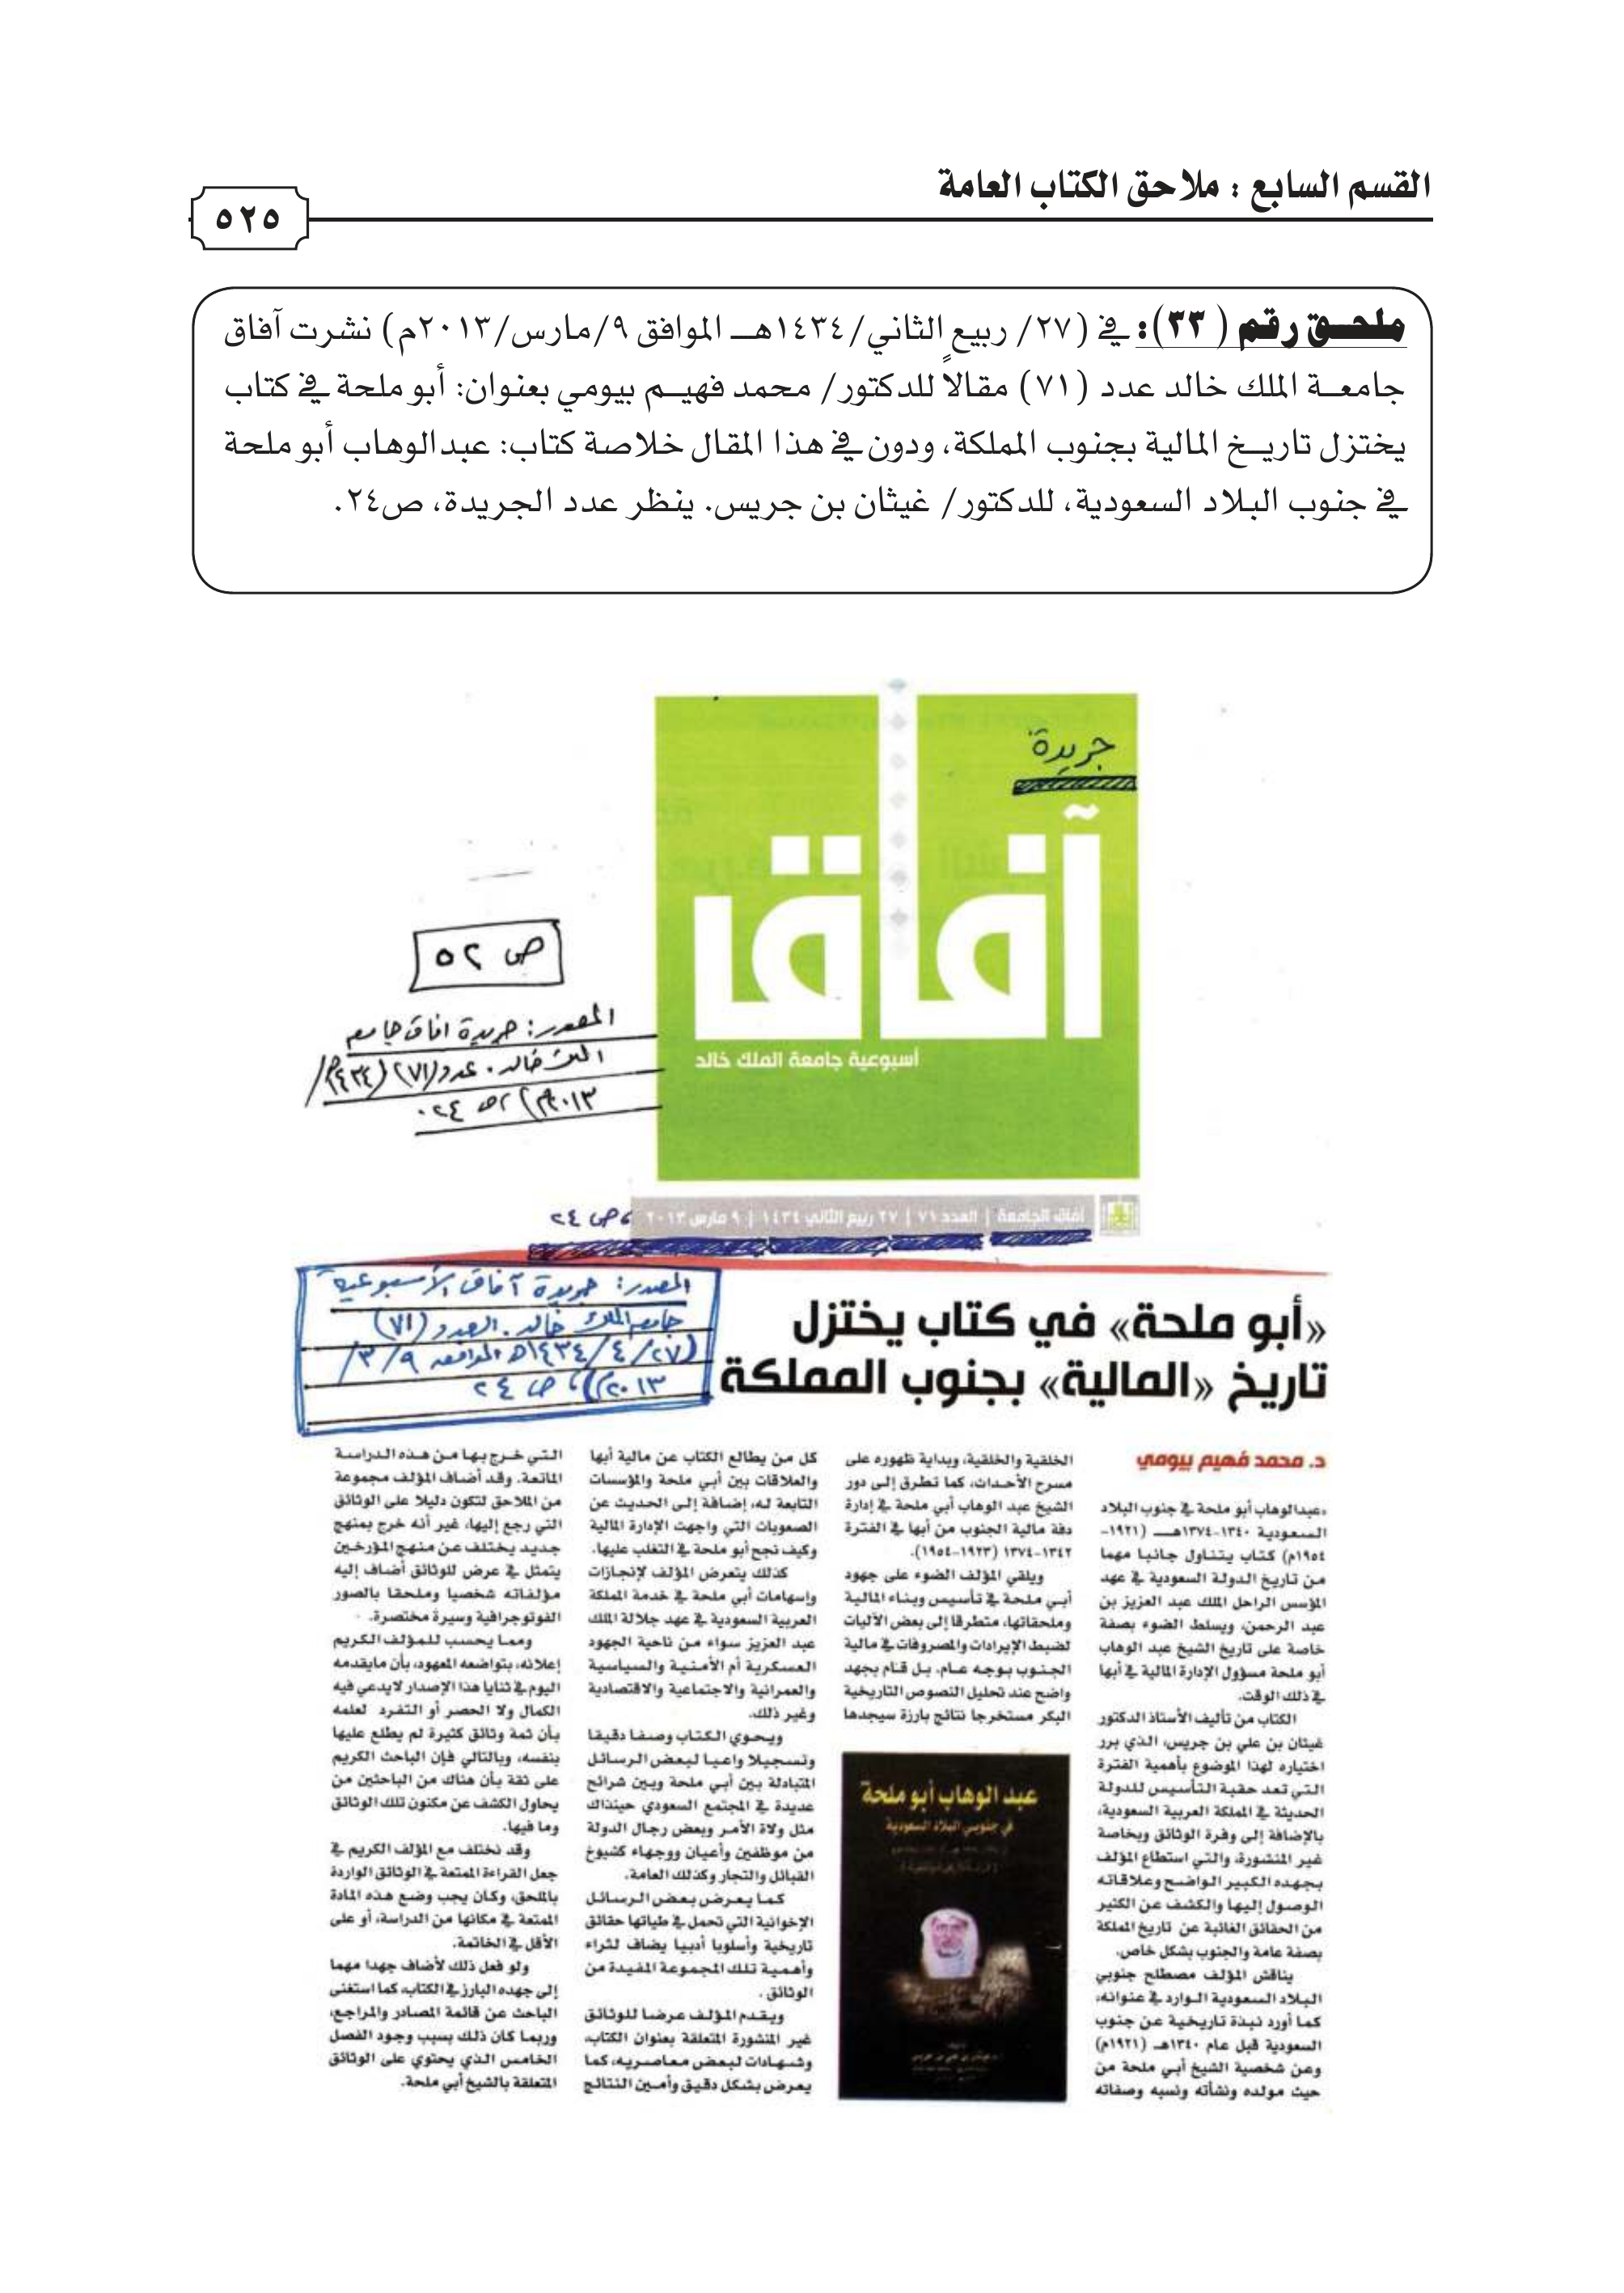 القسم السابع : ملاحق الكتاب العامة
٥٢٥
ملحـــق رقم ( ٣٣): في (٢٧/ ربيع الثاني/١٤٣٤هـــ الموافق ٩/مارس/٢٠١٣م) نشرت آفاق
جامعــة الملك خالد عدد (٧١) مقالاً للدكتور/ محمد فهيــم بيومي بعنوان: أبو ملحة في كتاب
يختزل تاريــخ المالية بجنوب المملكة، ودون في هذا المقال خلاصة كتاب: عبدالوهاب أبو ملحة
في جنوب البلاد السعودية، للدكتور/ غيثان بن جريس. ينظر عدد الجريدة، ص٢٤.
جريدة
آفاق
أسبوعية جامعة الملك خالد
ص ٥٢
المصدر: جريدة افاق جامعة
الملك خالد. عدد (٧١) (١٤٣٤هـ/
٢٠١٣م) ص ٢٤.
آفاق الجامعة | العدد ٧١ | ٢٧ ربيع الثاني ١٤٣٤ | ٩ مارس ٢٠١٣ ، ص ٢٤
المصدر: جريدة آفاق الأسبوعية
جامعة الملك خالد. العدد (٧١)
(٢٧/٤/١٤٣٤هـ الموافق ٩/٣/
٢٠١٣م)، ص ٢٤
«أبو ملحة» في كتاب يختزل
تاريخ «المالية» بجنوب المملكة
د. محمد فهيم بيومي
«عبدالوهاب أبو ملحة في جنوب البلاد
السعودية ١٣٤٠-١٣٧٤هـــ (١٩٢١-
١٩٥٤م) كتاب يتناول جانبا مهما
من تاريخ الدولة السعودية في عهد
المؤسس الراحل الملك عبد العزيز بن
عبد الرحمن، ويسلط الضوء بصفة
خاصة على تاريخ الشيخ عبد الوهاب
أبو ملحة مسؤول الإدارة المالية في أبها
في ذلك الوقت.
الكتاب من تأليف الأستاذ الدكتور
غيثان بن علي بن جريس، الذي برر
اختياره لهذا الموضوع بأهمية الفترة
التي تعد حقبة التأسيس للدولة
الحديثة في المملكة العربية السعودية،
بالإضافة إلى وفرة الوثائق وبخاصة
غير المنشورة، والتي استطاع المؤلف
بجهده الكبير الواضح وعلاقاته
الوصول إليها والكشف عن الكثير
من الحقائق الغائبة عن تاريخ المملكة
بصفة عامة والجنوب بشكل خاص.
يناقش المؤلف مصطلح جنوبي
البلاد السعودية الوارد في عنوانه،
كما أورد نبذة تاريخية عن جنوب
السعودية قبل عام ١٣٤٠هـ (١٩٢١م)
وعن شخصية الشيخ أبي ملحة من
حيث مولده ونشأته ونسبه وصفاته
الخلقية والخلقية، وبداية ظهوره على
مسرح الأحداث، كما تطرق إلى دور
الشيخ عبد الوهاب أبي ملحة في إدارة
دفة مالية الجنوب من أبها في الفترة
١٣٤٢-١٣٧٤ (١٩٢٣-١٩٥٤).
ويلقي المؤلف الضوء على جهود
أبي ملحة في تأسيس وبناء المالية
وملحقاتها، متطرقا إلى بعض الآليات
لضبط الإيرادات والمصروفات في مالية
الجنوب بوجه عام. بل قام بجهد
واضح عند تحليل النصوص التاريخية
البكر مستخرجا نتائج بارزة سيجدها
عبد الوهاب أبو ملحة
في جنوبي البلاد السعودية
كل من يطالع الكتاب عن مالية أبها
والعلاقات بين أبي ملحة والمؤسسات
التابعة له، إضافة إلى الحديث عن
الصعوبات التي واجهت الإدارة المالية
وكيف نجح أبو ملحة في التغلب عليها.
كذلك يتعرض المؤلف لإنجازات
وإسهامات أبي ملحة في خدمة المملكة
العربية السعودية في عهد جلالة الملك
عبد العزيز سواء من ناحية الجهود
العسكرية أم الأمنية والسياسية
والعمرانية والاجتماعية والاقتصادية
وغير ذلك.
ويحوي الكتاب وصفا دقيقا
وتسجيلا واعيا لبعض الرسائل
المتبادلة بين أبي ملحة وبين شرائح
عديدة في المجتمع السعودي حينذاك
مثل ولاة الأمر وبعض رجال الدولة
من موظفين وأعيان ووجهاء كشيوخ
القبائل والتجار وكذلك العامة.
كما يعرض بعض الرسائل
الإخوانية التي تحمل في طياتها حقائق
تاريخية وأسلوبا أدبيا يضاف لثراء
وأهمية تلك المجموعة المفيدة من
الوثائق.
ويقدم المؤلف عرضا للوثائق
غير المنشورة المتعلقة بعنوان الكتاب،
وشهادات لبعض معاصريه، كما
يعرض بشكل دقيق وأمين النتائج
التي خرج بها من هذه الدراسة
الماتعة. وقد أضاف المؤلف مجموعة
من الملاحق لتكون دليلا على الوثائق
التي رجع إليها، غير أنه خرج بمنهج
جديد يختلف عن منهج المؤرخين
يتمثل في عرض للوثائق أضاف إليه
مؤلفاته شخصيا وملحقا بالصور
الفوتوجرافية وسيرة مختصرة.
ومما يحسب للمؤلف الكريم
إعلانه، بتواضعه المعهود، بأن مايقدمه
اليوم في ثنايا هذا الإصدار لايدعي فيه
الكمال ولا الحصر أو التفرد لعلمه
بأن ثمة وثائق كثيرة لم يطلع عليها
بنفسه، وبالتالي فإن الباحث الكريم
على ثقة بأن هناك من الباحثين من
يحاول الكشف عن مكنون تلك الوثائق
وما فيها.
وقد نختلف مع المؤلف الكريم في
جعل القراءة الممتعة في الوثائق الواردة
بالملحق، وكان يجب وضع هذه المادة
الممتعة في مكانها من الدراسة، أو على
الأقل في الخاتمة.
ولو فعل ذلك لأضاف جهدا مهما
إلى جهده البارز في الكتاب، كما استغنى
الباحث عن قائمة المصادر والمراجع،
وربما كان ذلك بسبب وجود الفصل
الخامس الذي يحتوي على الوثائق
المتعلقة بالشيخ أبي ملحة.